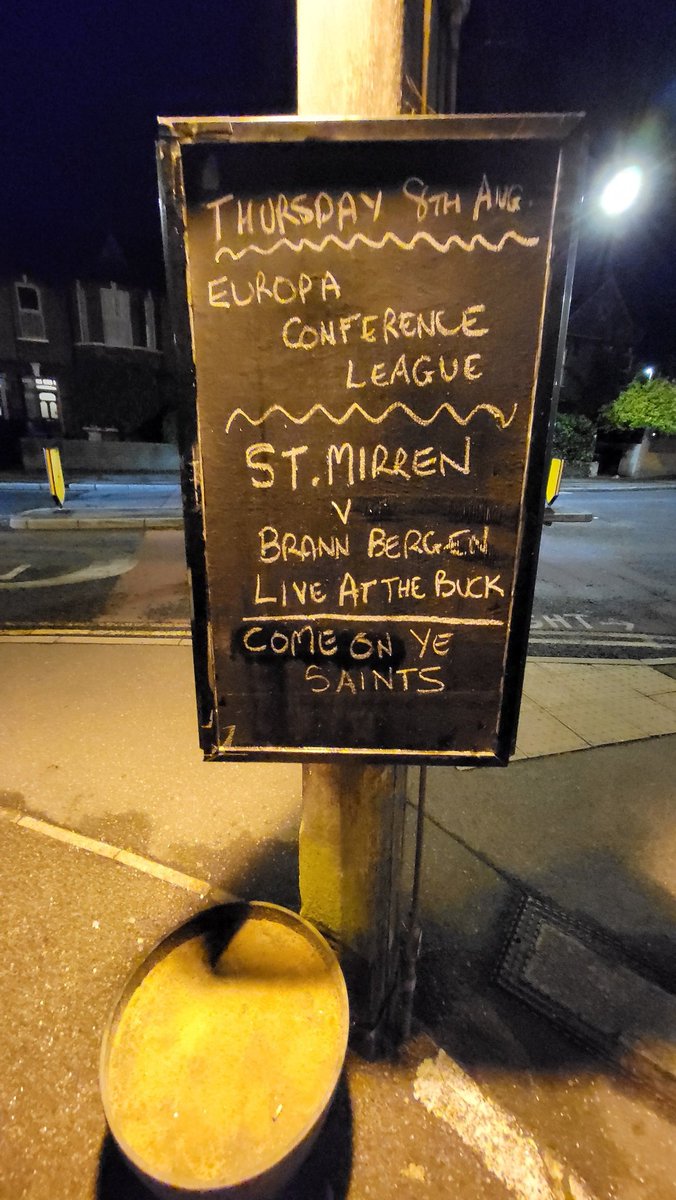 THURSDAY 8TH AUG.
EUROPA
CONFERENCE
LEAGUE
ST. MIRREN
V
BRANN BERGEN
LIVE AT THE BUCK
COME ON YE
SAINTS